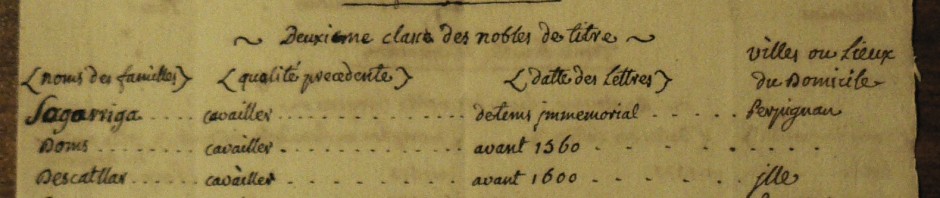 ~ Deuxieme classe des nobles de titre ~
villes ou Lieux
{noms des familles} {qualité precedente} {datte des Lettres} du Domicile
Sagarriga ..... cavailler ............ de tems jmmemorial ...... Perpignan
Doms ....... cavailler ............ avant 1360 .......
Descatllar ...... cavailler ............ avant 1600 ...... jlle